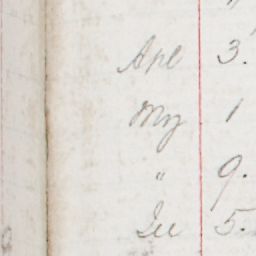 "
Apl 3.
My 1
" 9.
Jul 5.